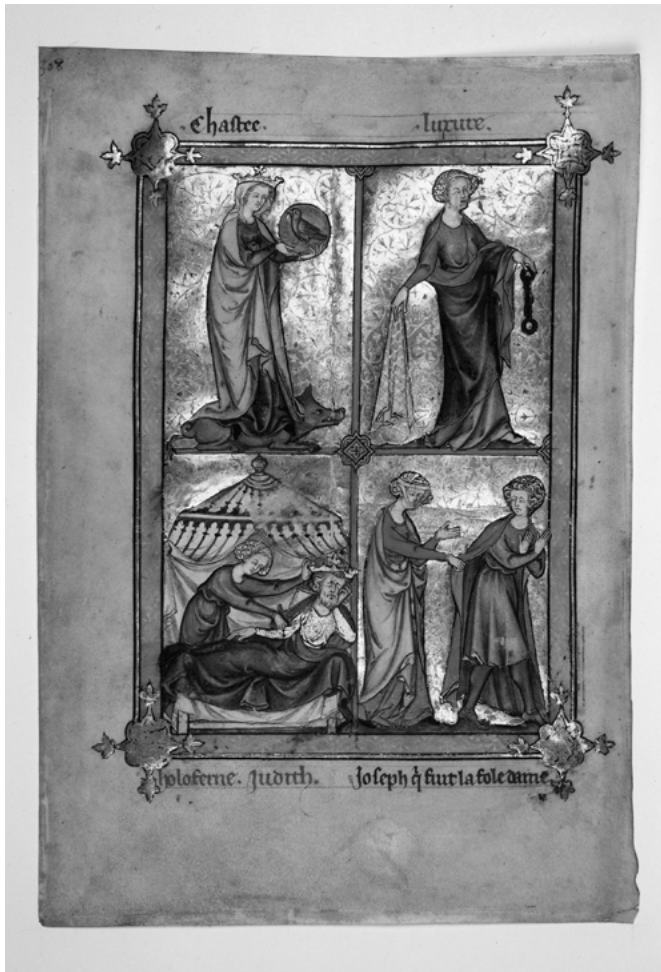 308
· Chastee · · luxure ·
holoferne . Judith . Joseph q̃ fuit la fole dame